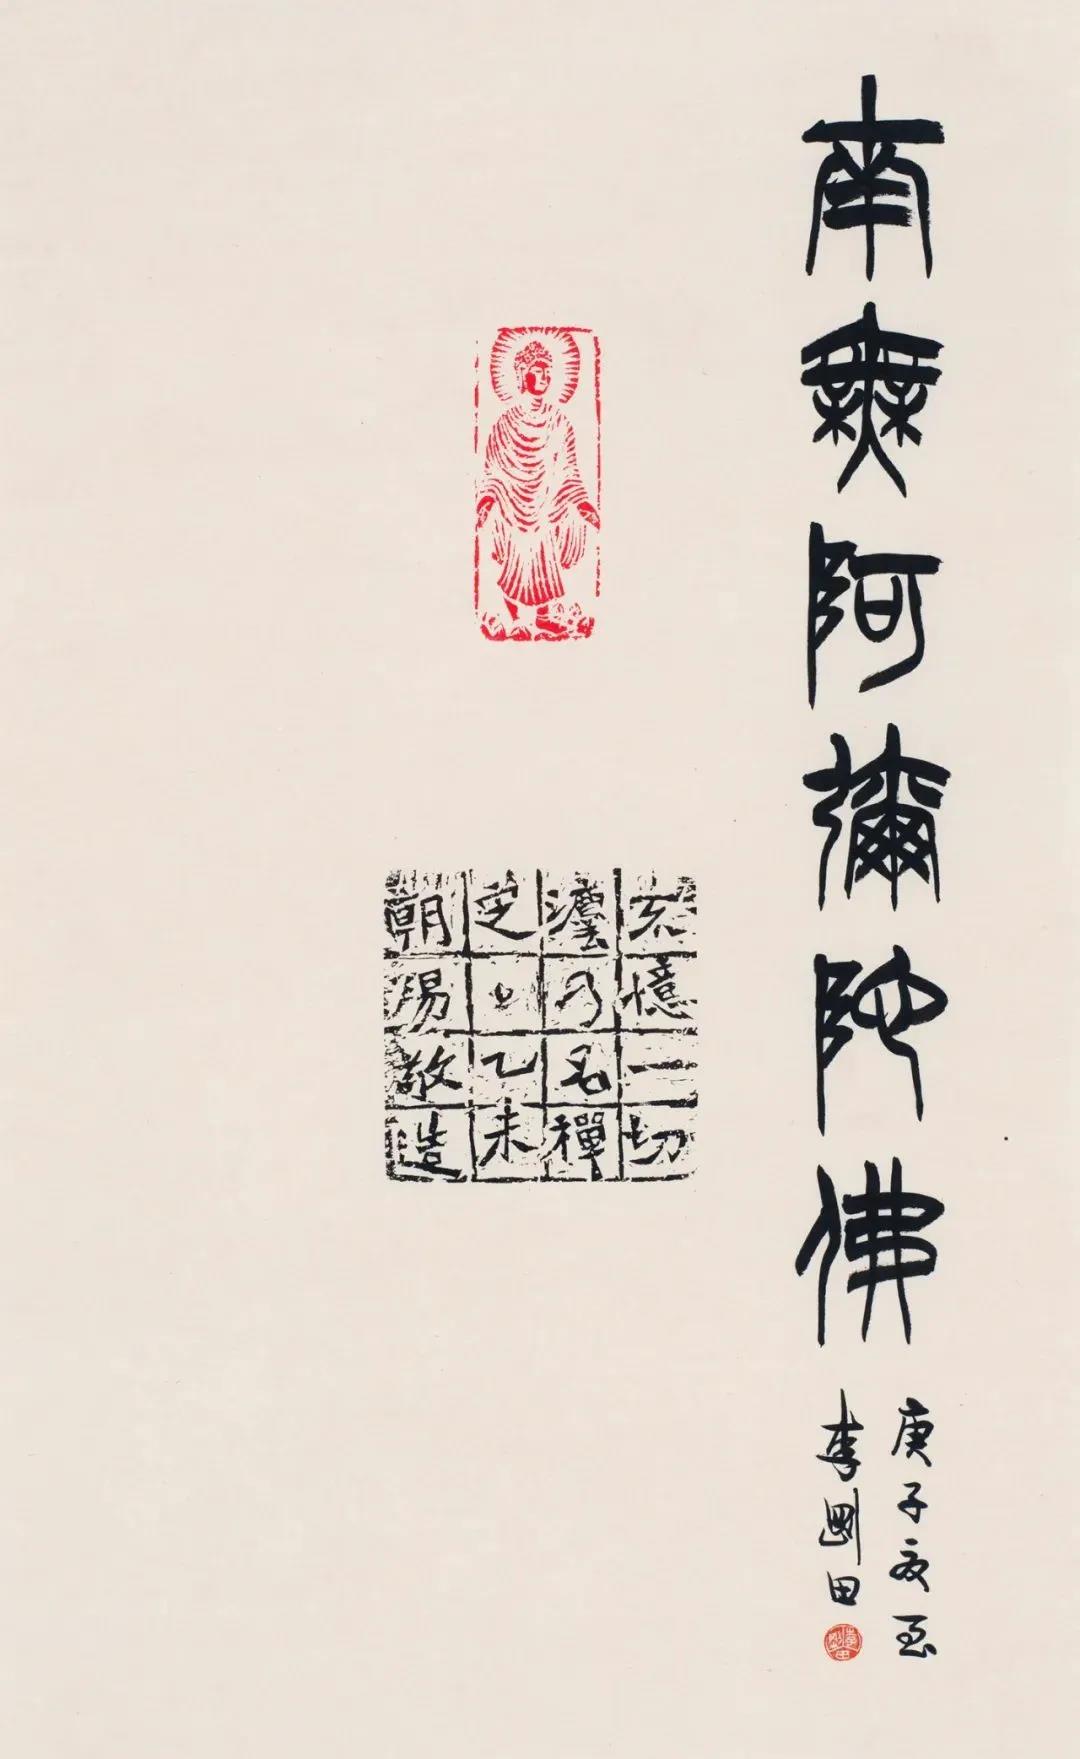 南無阿彌陀佛
庚子夏至
李剛田
不憶一切
灋乃名禪
定 乙未
朝陽敬造